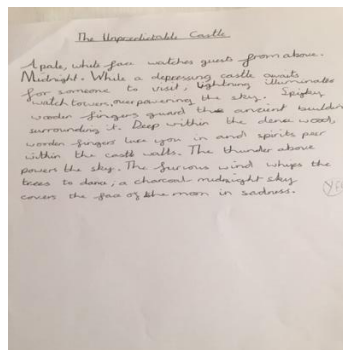 The Unpredictable Castle
A pale, white face watches guests from above.
Midnight. While a depressing castle awaits
for someone to visit, lightning illuminates
watch towers, overpowering the sky. Spigkey
wooden fingers guard the ancient building
surrounding it. Deep within the dense wood,
wooden fingers lure you in and spirits peer
within the castle walls. The thunder above
powers the sky. The furious wind whips the
trees to dance; a charcoal midnight sky
covers the face of the moon in sadness.